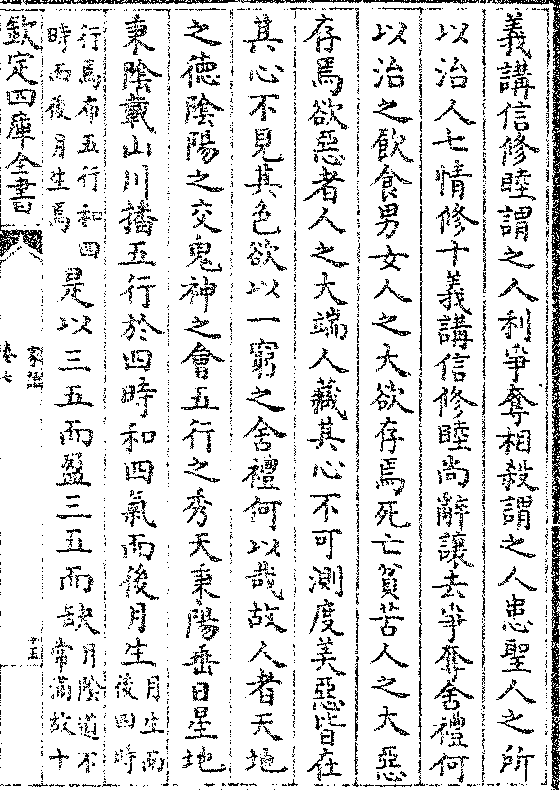 義講信修睦謂之人利爭奪相殺謂之人患聖人之所
以治人七情修十義講信修睦尚辭讓去爭奪舍禮何
以治之飲食男女人之大欲存焉死亡貧苦人之大惡
存焉欲惡者人之大端人藏其心不可測度美惡皆在
其心不見其色欲以一窮之舍禮何以哉故人者天地
之德陰陽之交鬼神之會五行之秀天秉陽垂日星地
秉陰載山川播五行於四時和四氣而後月生月生而後四時
行焉布五行和四時而後月生焉是以三五而盈三五而缺月陰道不常滿故十
欽定四庫全書
家語
卷七
十五